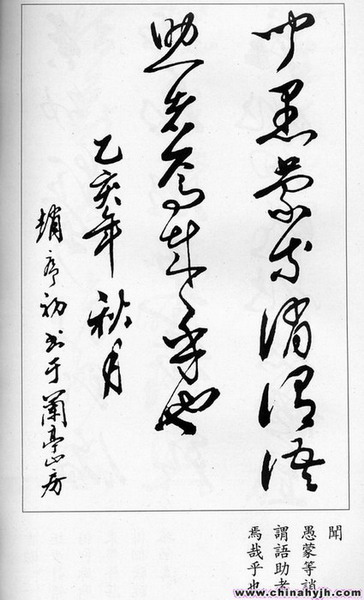 聞愚蒙等誚謂語
助者焉哉乎也
乙亥年 秋月
初书于蘭亭山房
聞
愚蒙等誚
謂語助者
焉哉乎也
www.chinahyjh.com